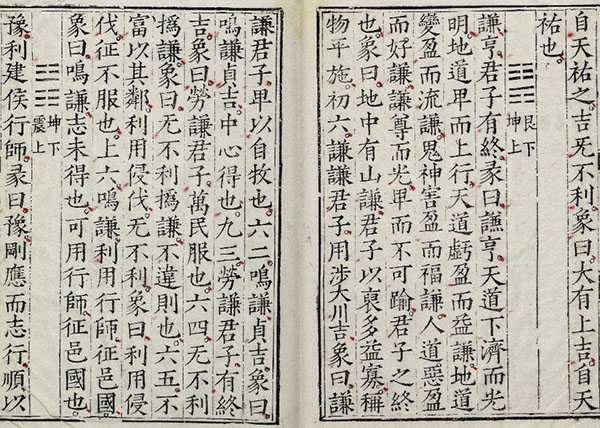 自天祐之吉无不利象曰大有上吉自天
祐也
艮下
坤上
謙亨君子有終彖曰謙亨天道下濟而光
明地道卑而上行天道虧盈而益謙地道
變盈而流謙鬼神害盈而福謙人道惡盈
而好謙謙尊而光卑而不可踰君子之終
也象曰地中有山謙君子以裒多益寡稱
物平施初六謙謙君子用涉大川吉象曰謙
謙君子卑以自牧也六二鳴謙貞吉象曰
鳴謙貞吉中心得也九三勞謙君子有終
吉象曰勞謙君子萬民服也六四无不利
撝謙象曰无不利撝謙不違則也六五不
富以其鄰利用侵伐无不利象曰利用侵
伐征不服也上六鳴謙利用行師征邑國
象曰鳴謙志未得也可用行師征邑國也
坤下
震上
豫利建侯行師彖曰豫剛應而志行順以